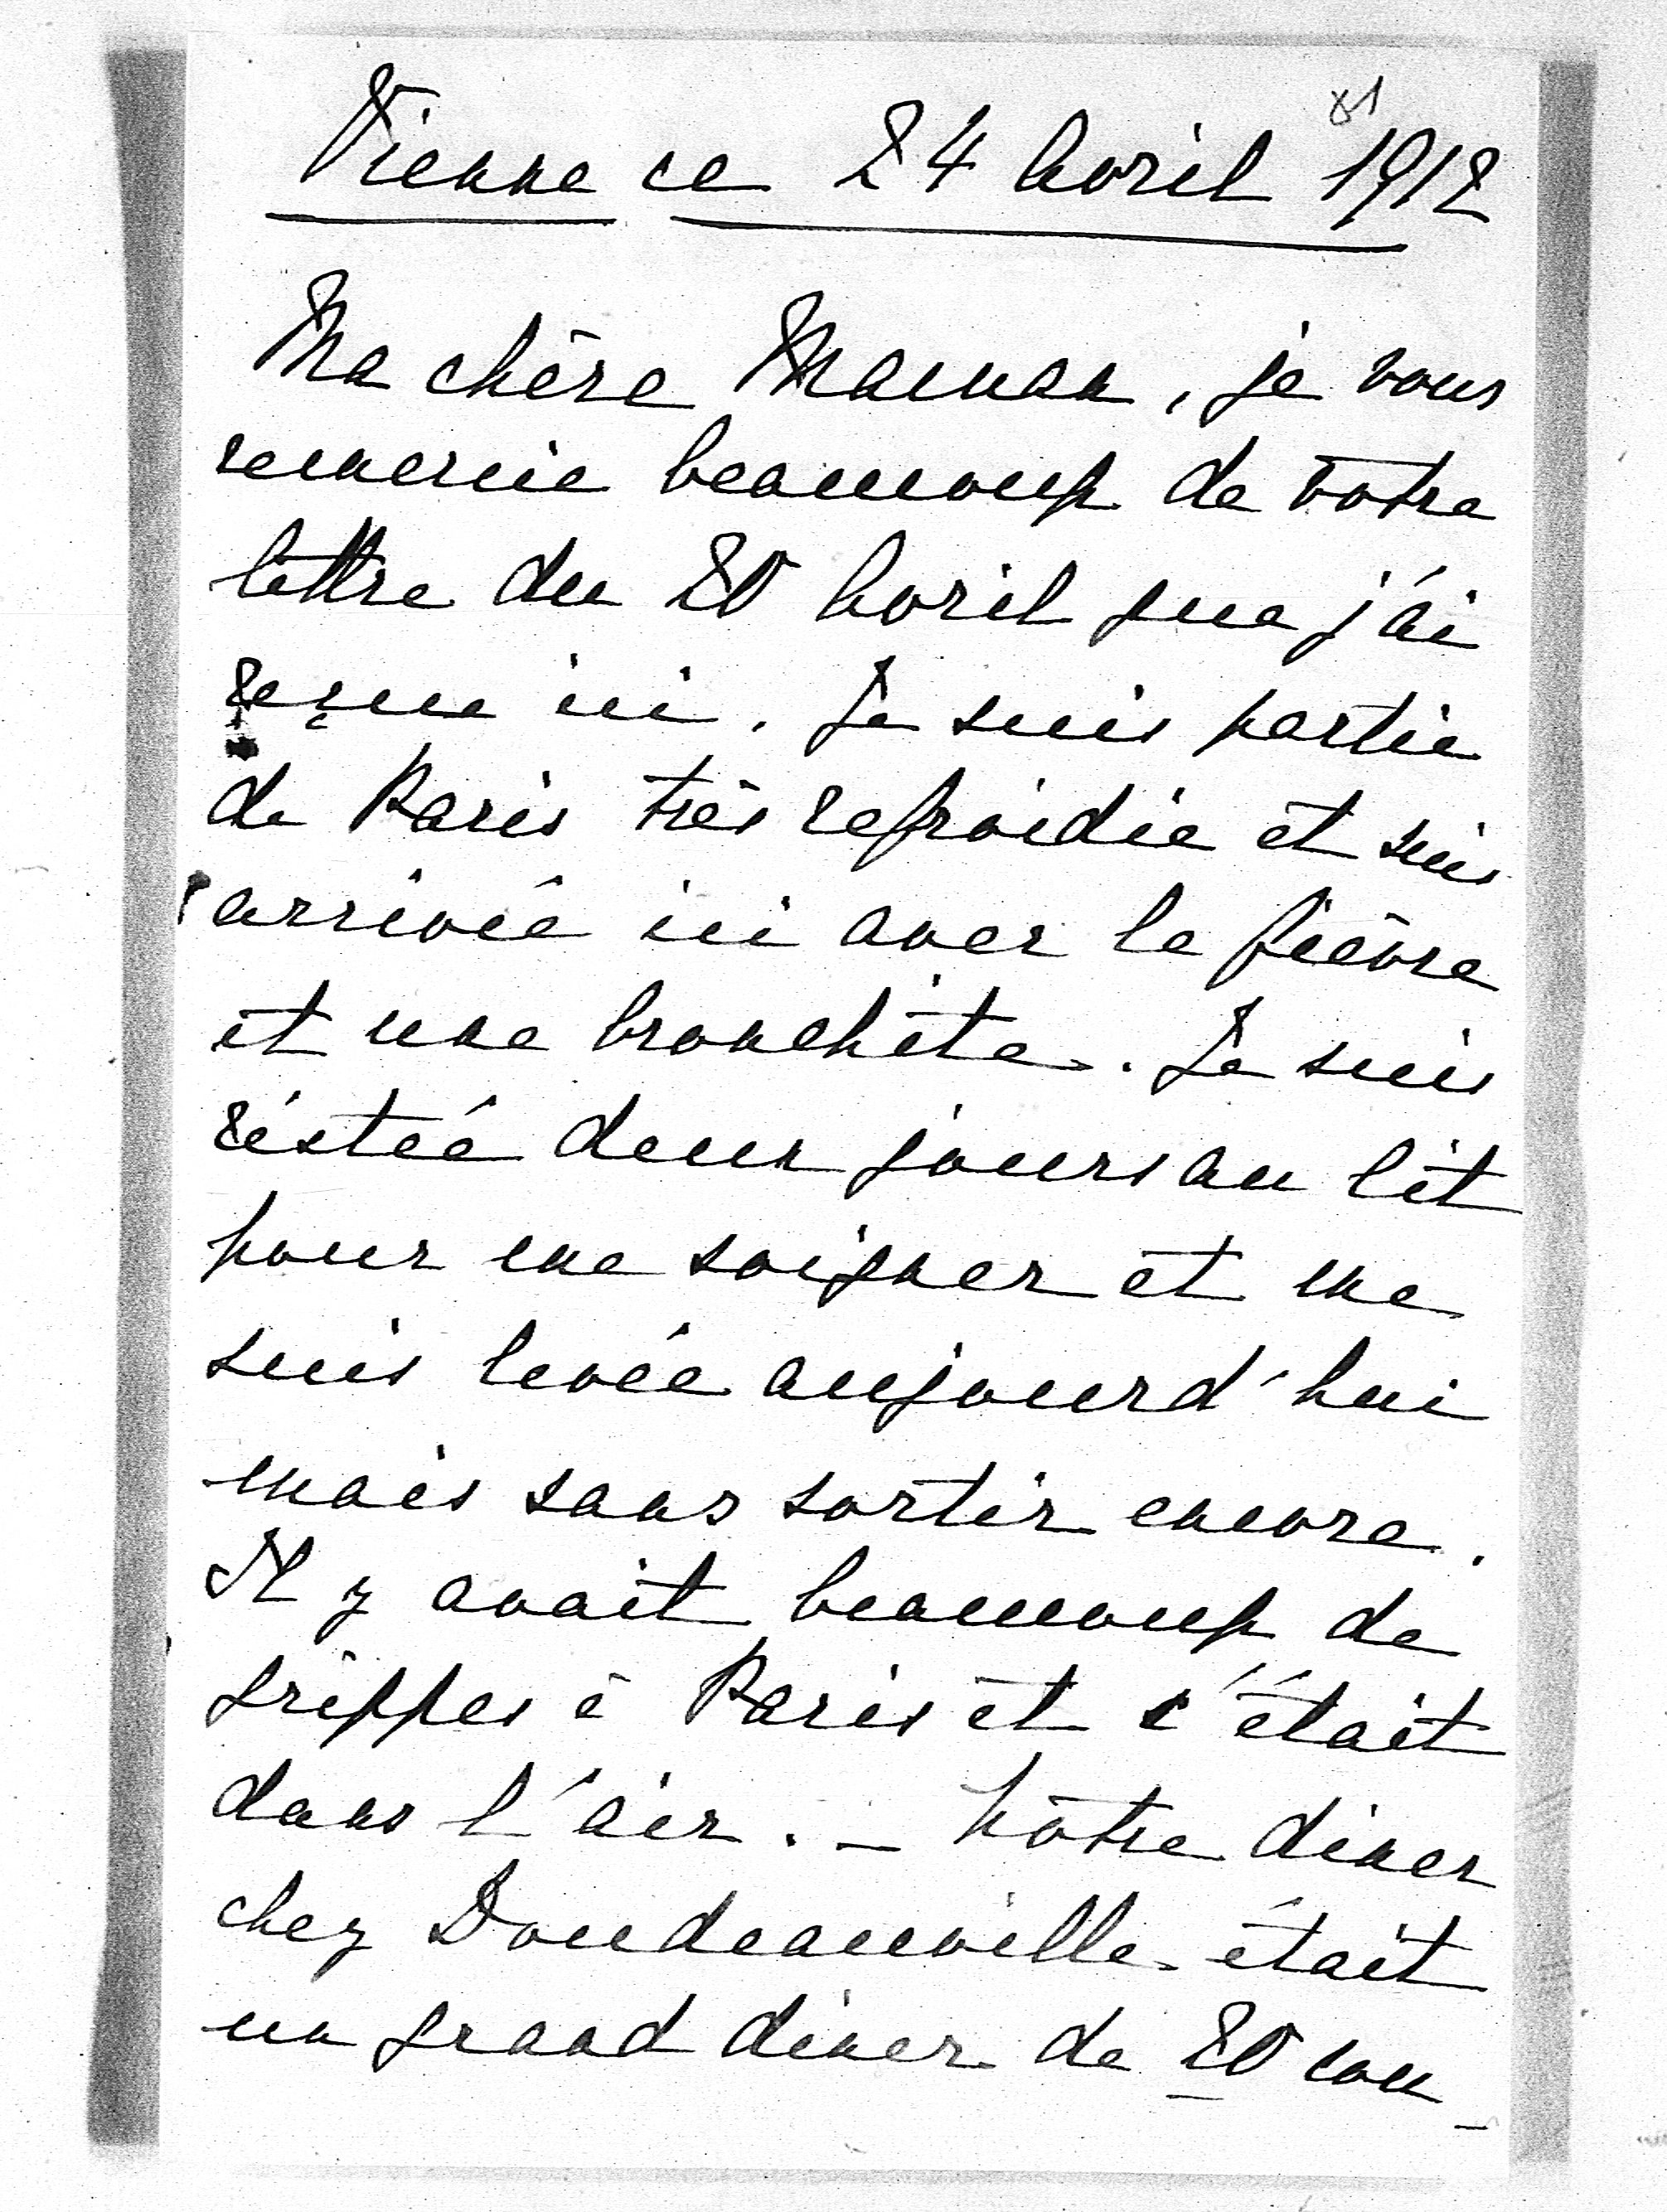 81
Vienne ce 24 Avril 1912
Ma chère Maman, je vous
remercie beaucoup de votre
lettre du 20 Avril que j'ai
reçue ici. Je suis partie
de Paris très refroidie et suis
arrivée ici avec la fièvre
et une bronchite. Je suis
réstée deux jours au lit
pour me soigner et me
suis levée aujourd'hui
mais sans sortir encore.
Il y avait beaucoup de
grippes à Paris et c'était
dans l'air. – Notre diner
chez Doudeauville était
un grand diner de 20 cou-